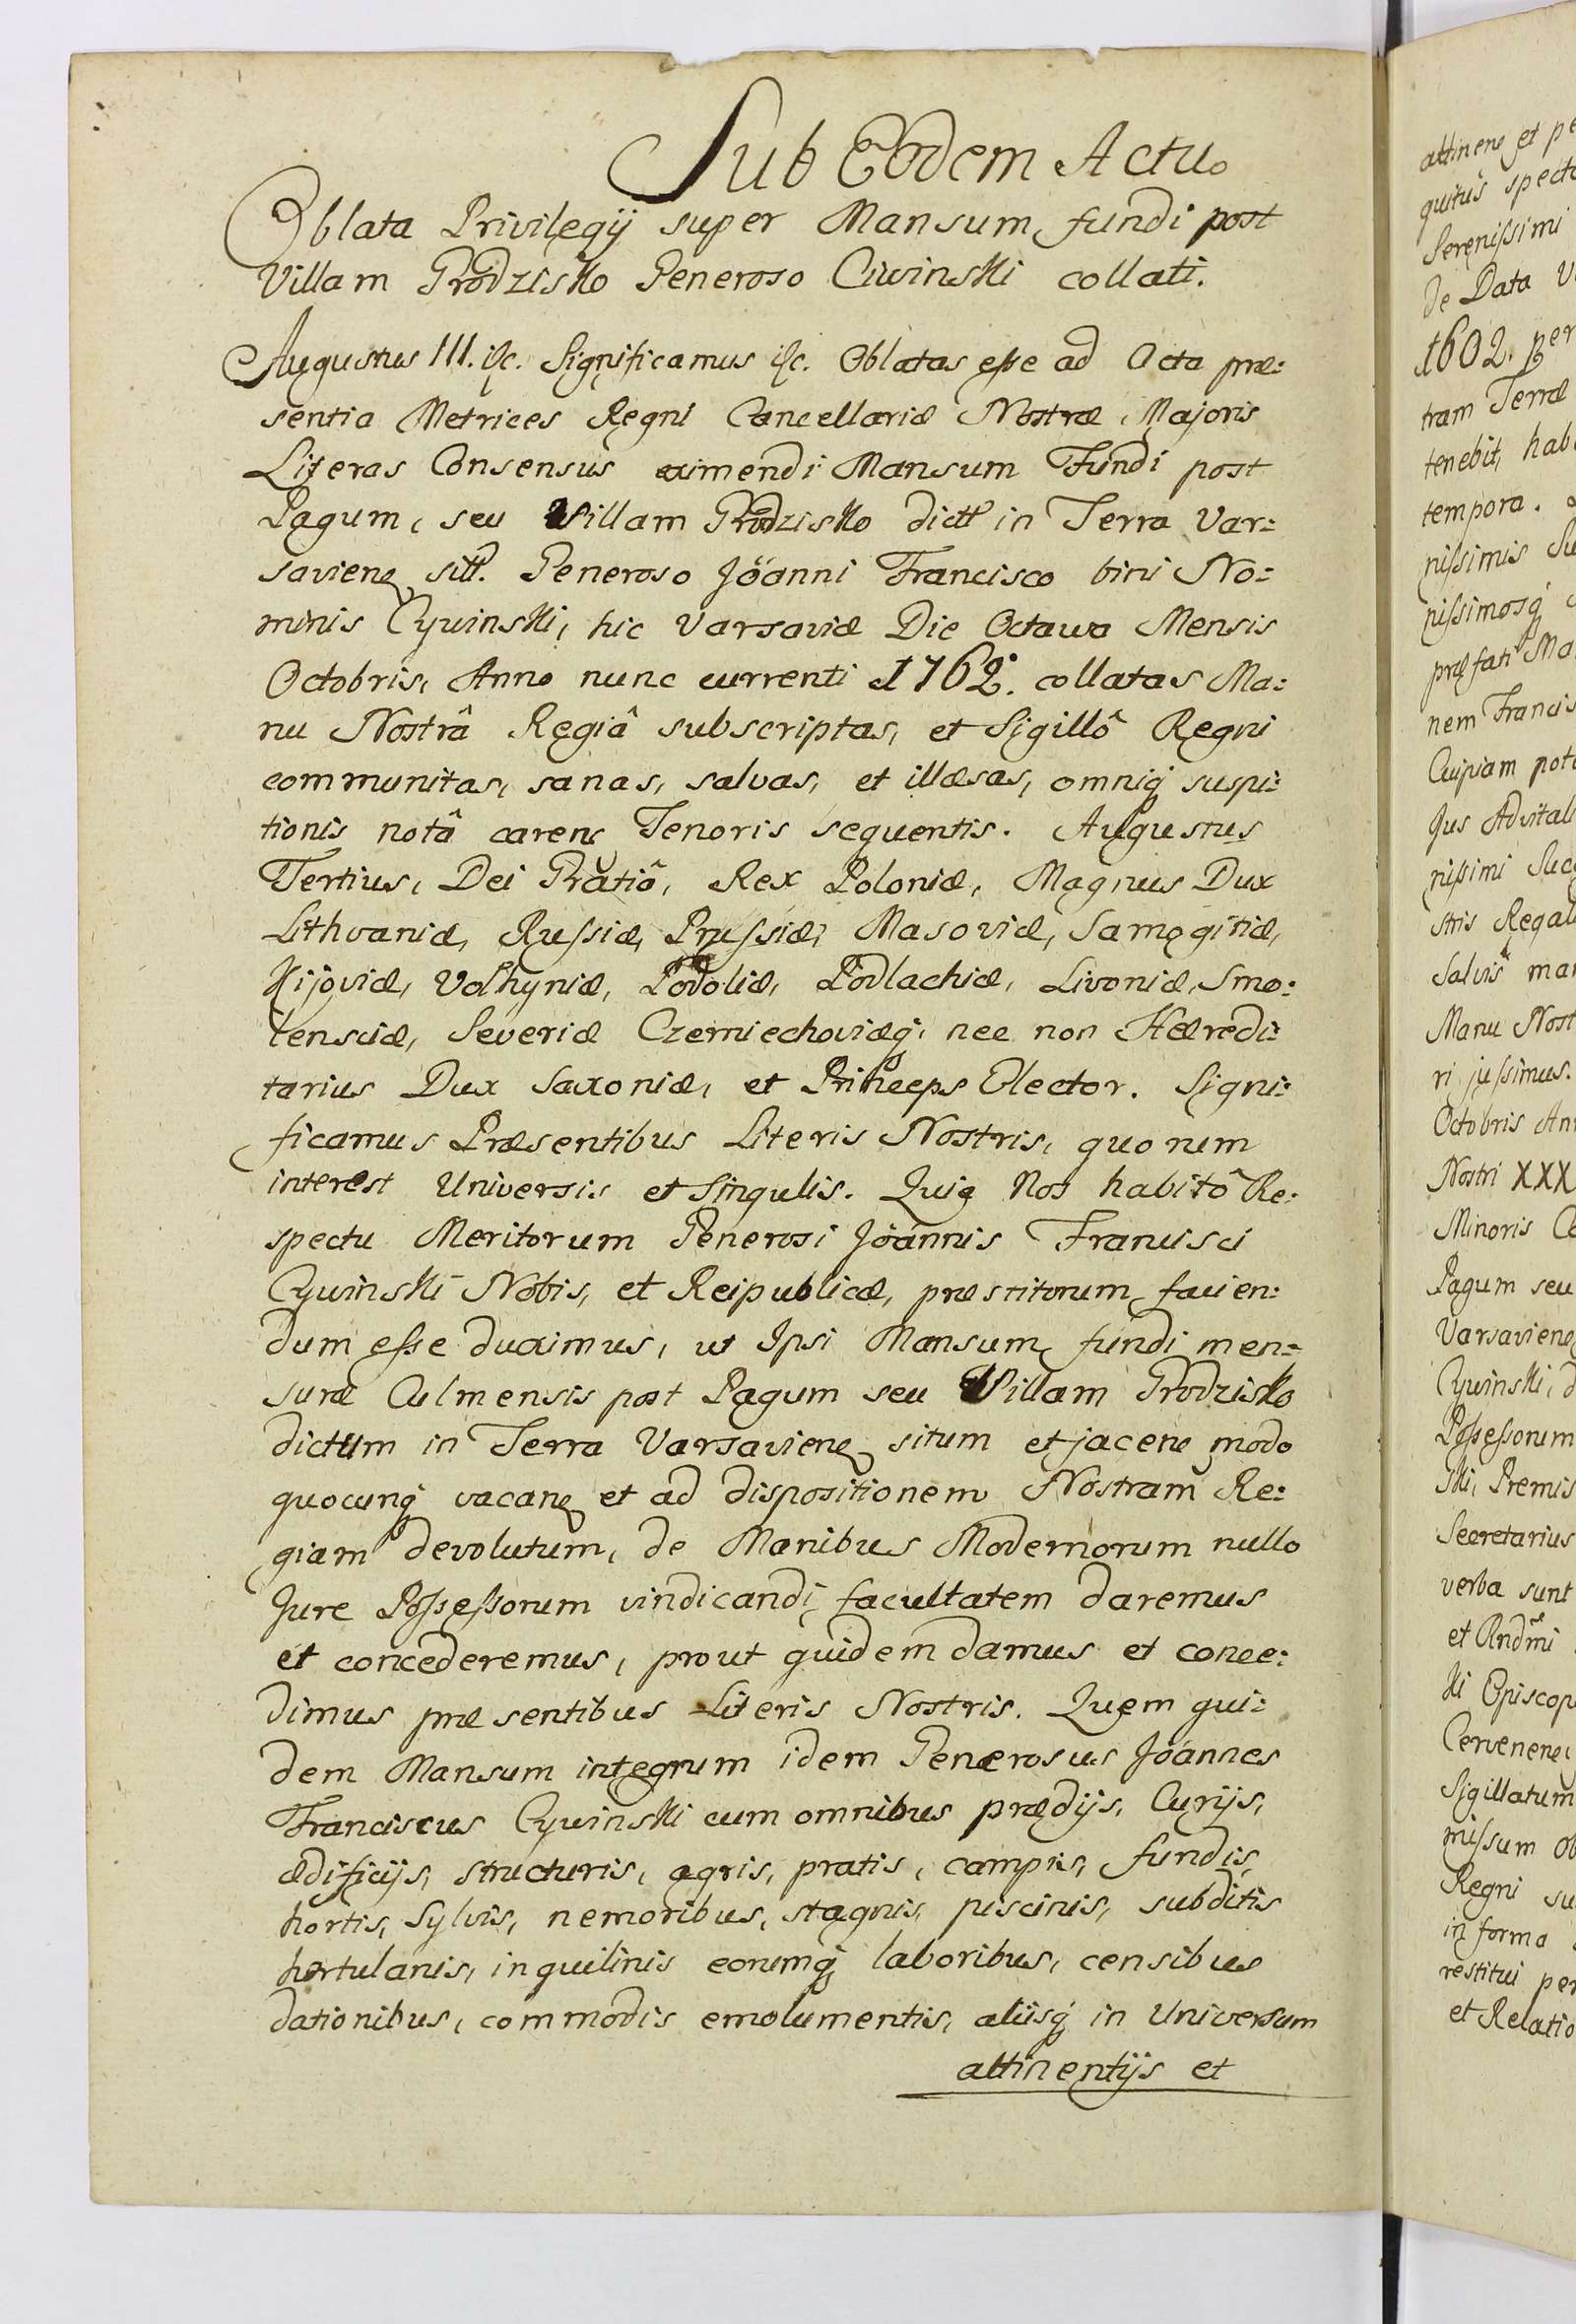 Sub Eodem Actu.
Oblata Privilegij super Mansum fundi post
Villam Grodzisko Generoso Ciwinski collati.
Augustus III. &c. Significamus &c. Oblatas esse ad Acta præ:
sentia Metrices Regni Cancellariæ Nostræ Majoris
Literas Consensus eximendi Mansum Fundi post
Pagum, seu Villam Grodzisko dictt in Terra Var:
savienę sitt. Generoso Joanni Francisco bini No:
minis Cywinski, hic Varsaviæ Die Octawa Mensis
Octobris, Anno nunc currenti 1762. collatas Ma:
nu Nostrâ Regiâ subscriptas, et Sigillô Regni
communitas, sanas, salvas, et illæsas, omniq suspi:
tionis notâ carenę Tenoris sequentis. Augustus
Tertius, Dei Gratiâ, Rex Poloniæ, Magnus Dux
Lithvaniæ, Russiæ, Prussiæ, Masoviæ, Samogitiæ,
Kijoviæ, Volhyniæ, Podoliæ, Podlachiæ, Livoniæ, Smo:
lensciæ, Severiæ Czerniechoviæq, nec non Hæredi:
tarius Dux Saxoniæ, et Princeps Elector. Signi:
ficamus Præsentibus Literis Nostris, quorum
interest Universis et Singulis. Quia Nos habitô Re:
spectu Meritorum Generosi Joannis Francisci
Cywinski Nobis, et Reipublicæ, præstitorum facien:
dum esse duximus, ut Ipsi Mansum fundi men:
suræ Culmensis post Pagum seu Villam Grodzisko
dictum in Terra Varsavienę situm et jacenę modo
quocunq vacanę et ad dispositionem Nostram Re:
giam devolutum, de Manibus Modernorum nullo
Jure Possessorum vindicandi facultatem daremus
et concederemus, prout quidem damus et conce:
dimus præsentibus Literis Nostris. Quem qui:
dem Mansum integrum idem Generosus Joannes
Franciscus Cywinski cum omnibus prædijs, Curijs,
ædificijs, structuris, agris, pratis, campis, fundis,
hortis, Sylvis, nemoribus, stagnis, piscinis, subditis
hortulanis, inquilinis eorumq laboribus, censibus
dationibus, commodis emolumentis, aliisq in Universum
attinentijs et
attinenę et pe
quitus specta
Serenissimi
de Data V
1602. per
tram Terræ
tenebit, hab
tempora.
nissimis Su
nissimosq
præfati Ma
nem Francis
Cuipiam pot
Jus Advitali
nissimi Succ
stris Regal
Salvis man
Manu Nost
ri jussimus.
Octobris An
Nostri XXX
Minoris Ca
Pagum seu
Varsavienę
Cywinski, d
Possessorum
ski, Premis
Secretarius
verba sunt
et Rndmi
ki Episcop
Cervenenę,
Sigillatum
missum ob
Regni su
in forma
restitui per
et Relatio